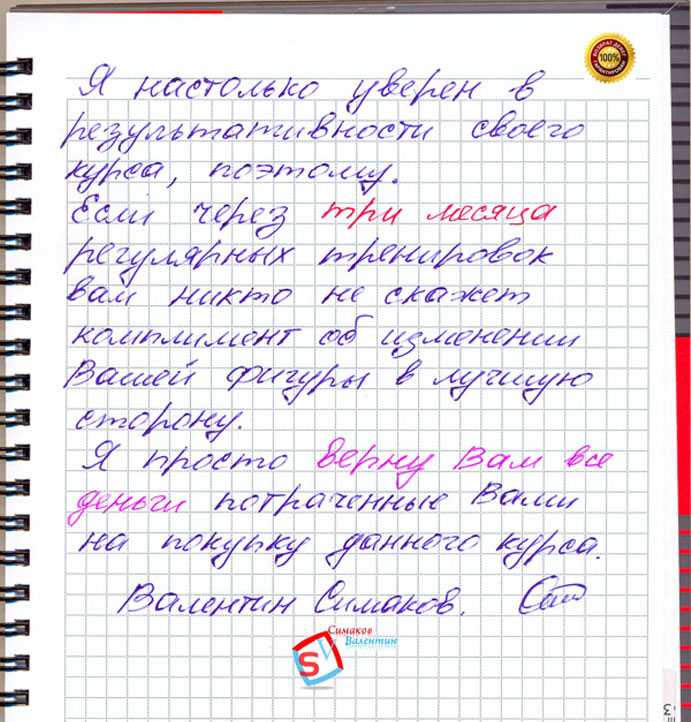 ВОЗВРАТ ДЕНЕГ
100%
ГАРАНТИРОВАН
Я настолько уверен в
результативности своего
курса, поэтому.
Если через три месяца
регулярных тренировок
вам никто не скажет
комплимент об изменении
Вашей фигуры в лучшую
сторону.
Я просто верну Вам все
деньги потраченные Вами
на покупку данного курса.
Валентин Симаков.
Симаков
Валентин
SV